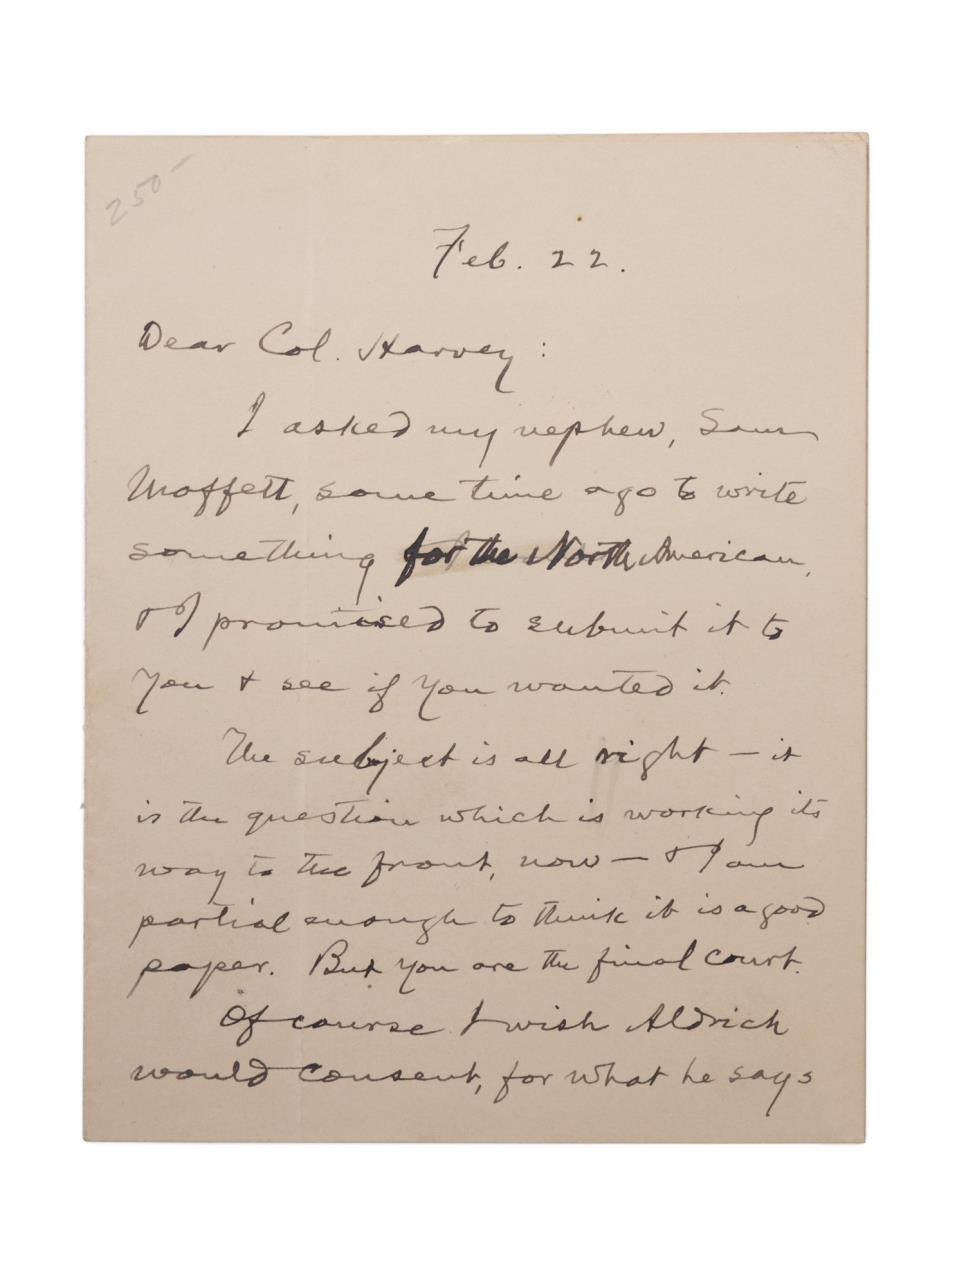 250-
Feb. 22.
Dear Col. Harvey:
I asked my nephew, Sam
Moffett, some time ago to write
something for the North American,
& I promised to submit it to
you & see if you wanted it.
The subject is all right — it
is the question which is working its
way to the front, now — & I am
partial enough to think it is a good
paper. But you are the final court.
Of course I wish Aldrich
would consent, for what he says